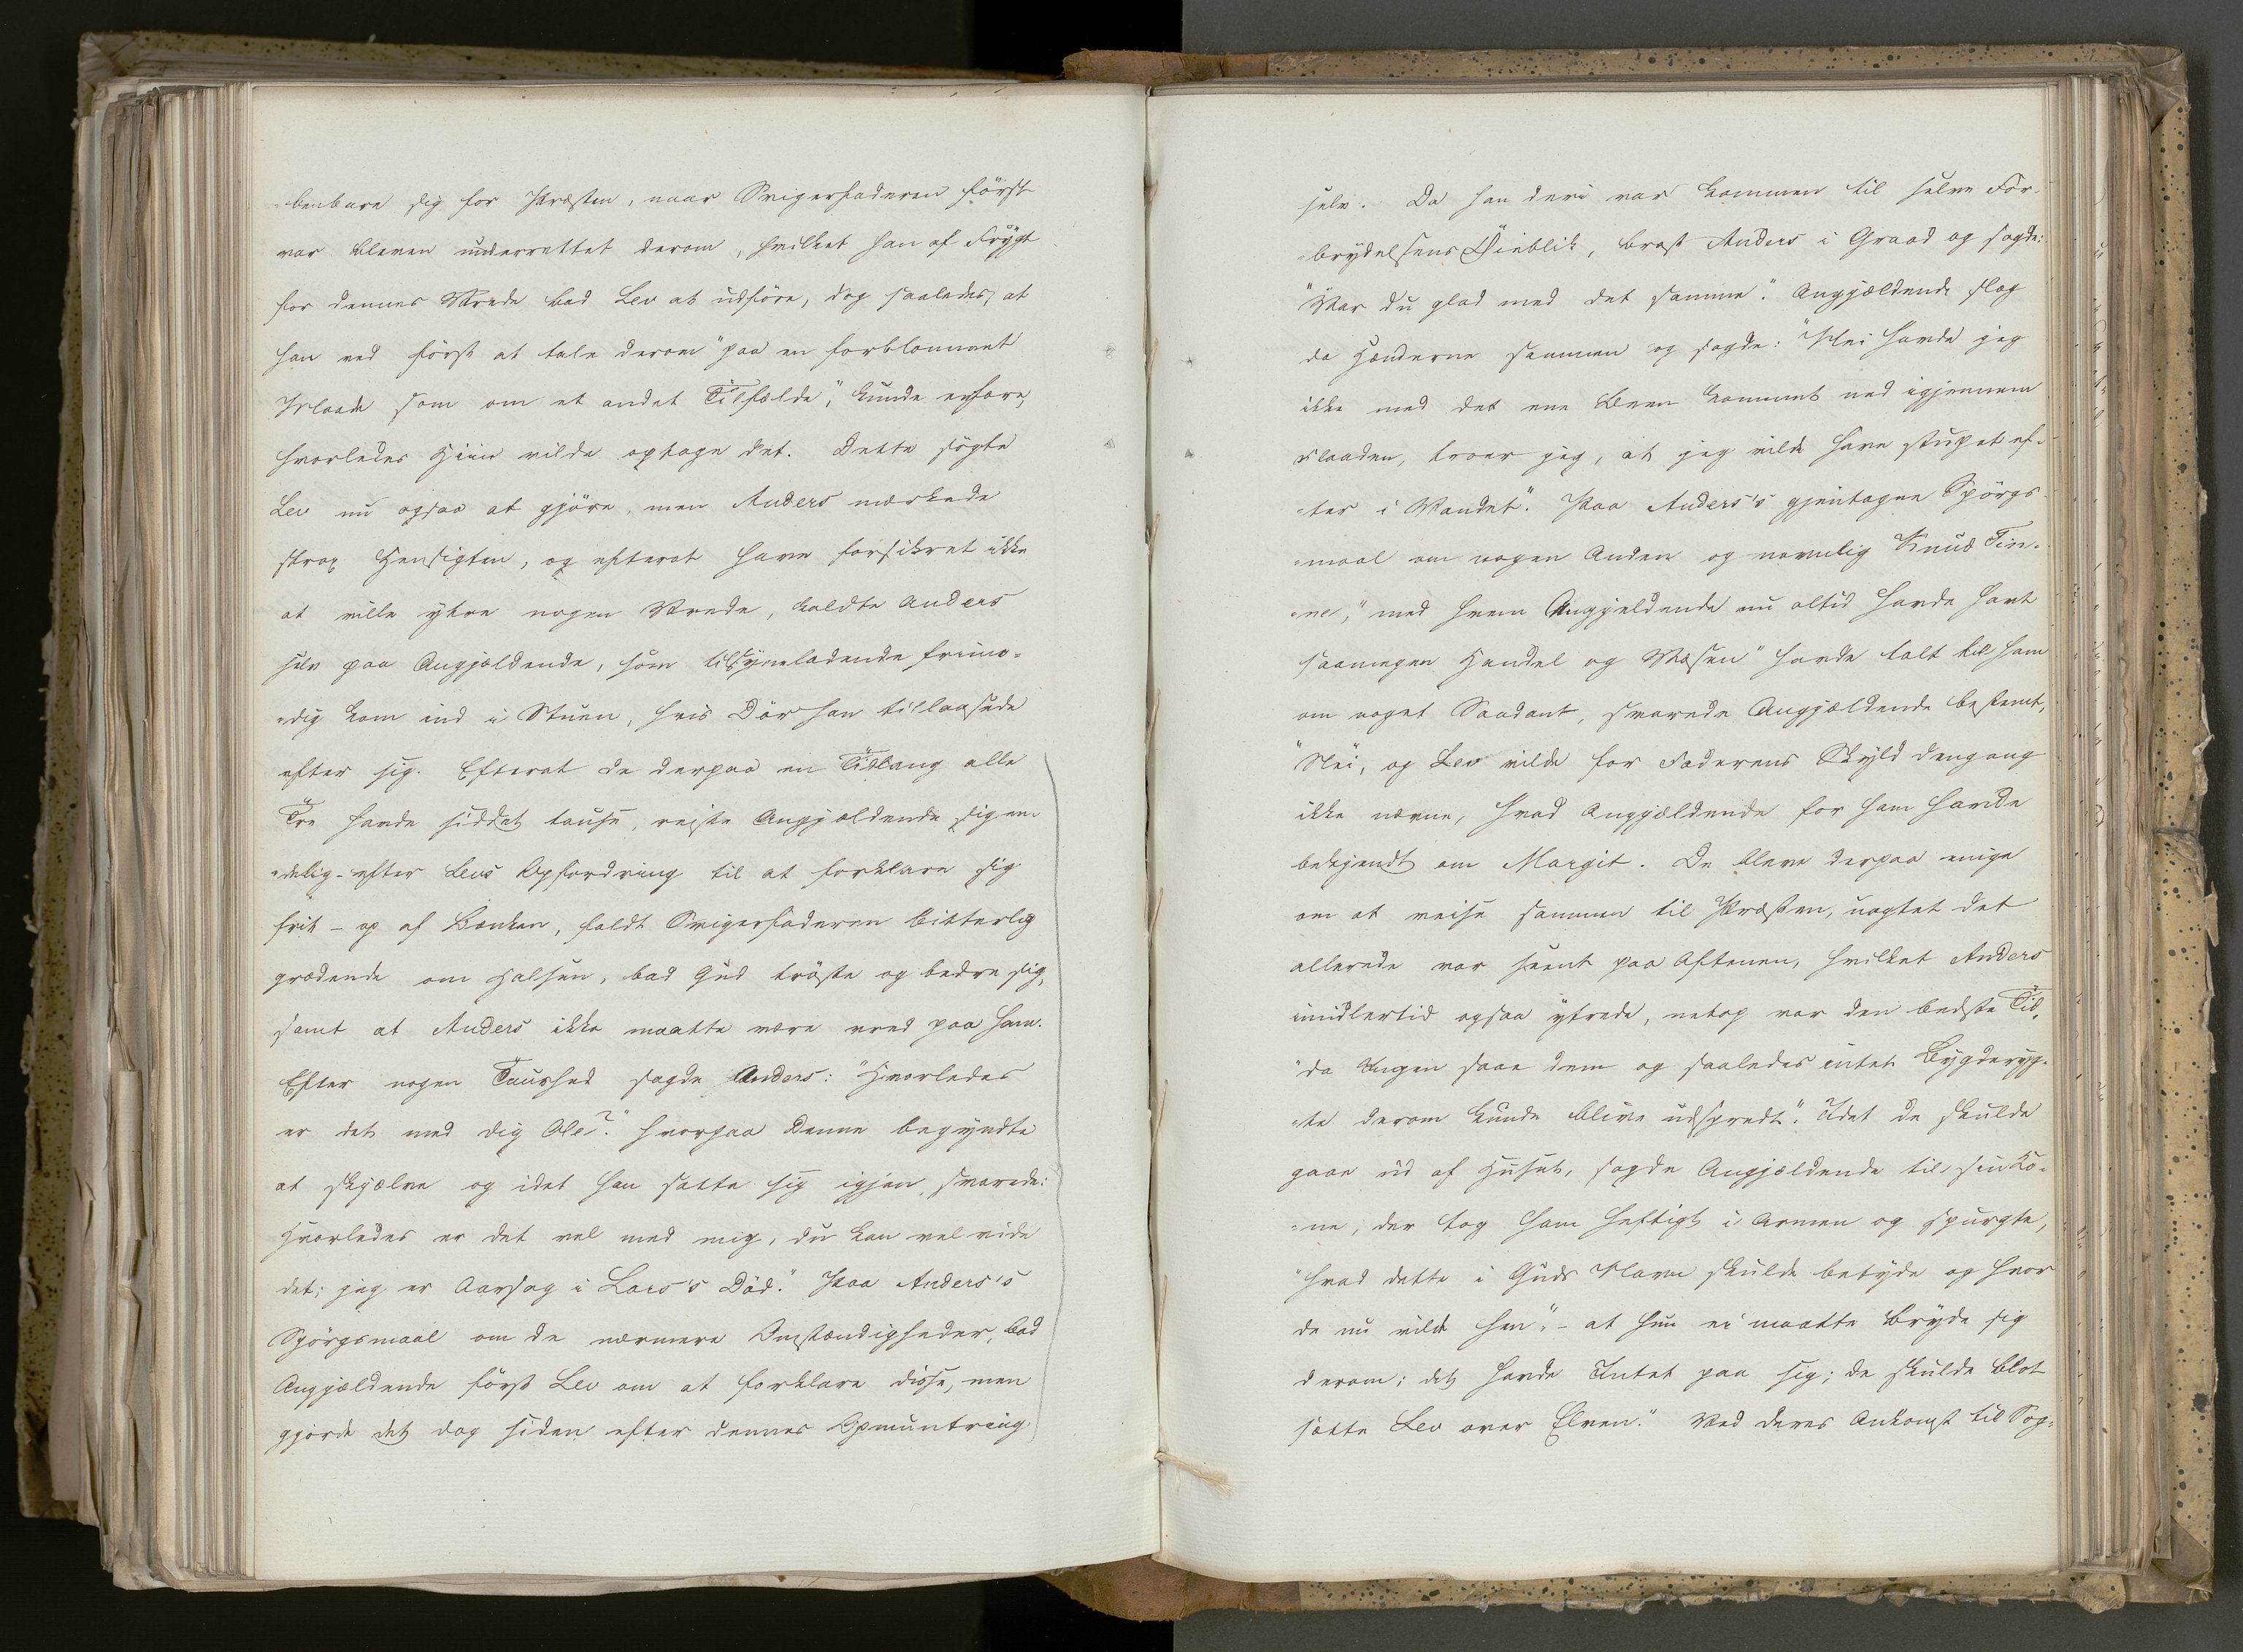 -benbare sig for Præsten, naar Svigerfaderen först
var bleven underrettet derom, hvilket han af Frygt
for dennes Vrede bad Lev at udføre, dog saaledes, at
han ved först at tale derom "paa en forblommet
Maade som om et andet Tilfælde", kunde erfare,
hvorledes Hiin vilde optage det. Dette søgte
Lev nu ogsaa at gjöre, men Anders mærkede
strax Hensigten, og efterat have forsikret ikke
at ville yttre nogen Vrede, kaldte Anders
selv paa Angjældende, som tilsyneladende frimo-
-dig kom ind i Stuen, hvis Dör han tillaasede
efter sig. Efterat de derpaa en Tidlang alle
Tre havde siddet tause, reiste Angjældende sig en-
-delig - efter Levs Opfordring til at forklare sig
frit - op af Bænken, faldt Svigerfaderen bitterlig
grædende om Halsen, bad Gud tröste og bedre sig,
samt at Anders ikke maatte være vred paa ham.
Efter nogen Taushed sagde Anders: "Hvorledes
er det med dig Ole?" hvorpaa Denne begyndte
at skjælve og idet han satte sig igjen, svarede:
Hvorledes er det vel med mig, du kan vel vide
det; jeg er Aarsag i Lars's Död." Paa Anders's
Spörgsmaal om de nærmere Omstændigheder, bad
Angjældende först Lev om at forklare disse, men
gjorde det dog siden efter dennes Opmuntring
selv. Da han deri var kommen til selve For-
-brydelsens Öieblik, brast Anders i Graad og sagde:
"Var du glad med det samme". Angjældende slog
da Hænderne sammen og sagde: "Nei havde jeg
ikke med det ene Been kommet ned igjennem
Flaaden, troer jeg, at jeg vilde have stupet ef-
-ter i Vandet". Paa Anders's gjentagne Spörgs-
-maal om nogen Anden og navnlig "Knud Tin-
-ne", "med hvem Angjældende nu altid havde havt
saamegen Handel og Væsen" havde talt til ham
om noget Saadant, svarede Angjældende bestemt,
"Nei", og Lev vilde for Faderens Skyld dengang
ikke nævne, hvad Angjældende for ham havde
bekjendt om Margit. De bleve derpaa enige
om at reise sammen til Præsten, uagtet det
allerede var seent paa Aftenen, hvilket Anders
imidlertid ogsaa yttrede, netop var den bedste Tid,
"da Ingen saae dem og saaledes intet Bygderyg-
-te derom kunde blive udspredt". Idet de skulde
gaae ud af Huset, sagde Angjældende til sin Ko-
-ne, der tog ham heftigt i Armen og spurgte,
"hvad dette i Guds Navn skulde betyde og hvor
de nu vilde hen", - at hun ei maatte bryde sig
derom; det havde Intet paa sig; de skulde blot
sætte Lev over Elven." Ved deres Ankomst til Sog-